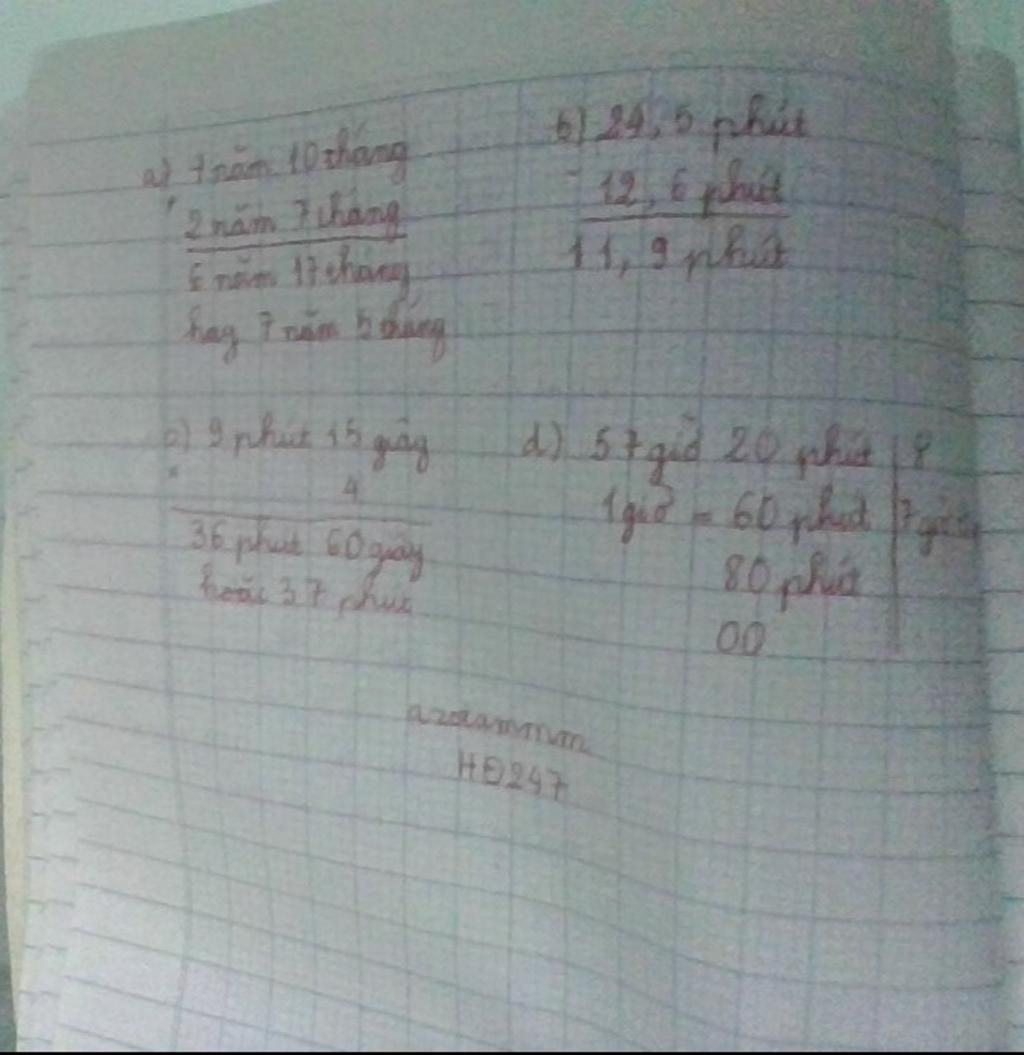 a) 4 năm 10 tháng
2 năm 7 tháng
6 năm 17 tháng
hay 7 năm 5 tháng
b) 24,5 phút
- 12,6 phút
11,9 phút
c) 9 phút 15 giây
4
36 phút 60 giây
hoặc 37 phút
d) 57 giờ 20 phút
1 giờ = 60 phút 7 giờ
80 phút
00
HĐ247